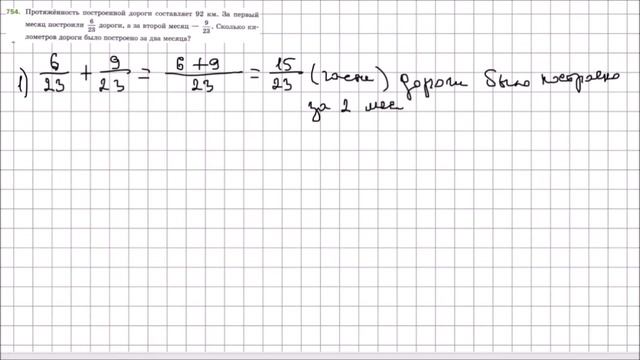 754. Протяжённость построенной дороги составляет 92 км. За первый
месяц построили 6/23 дороги, а за второй месяц — 9/23. Сколько ки-
лометров дороги было построено за два месяца?
1) 6/23 + 9/23 = 6+9/23 = 15/23 (части) дороги было построено
за 2 мес